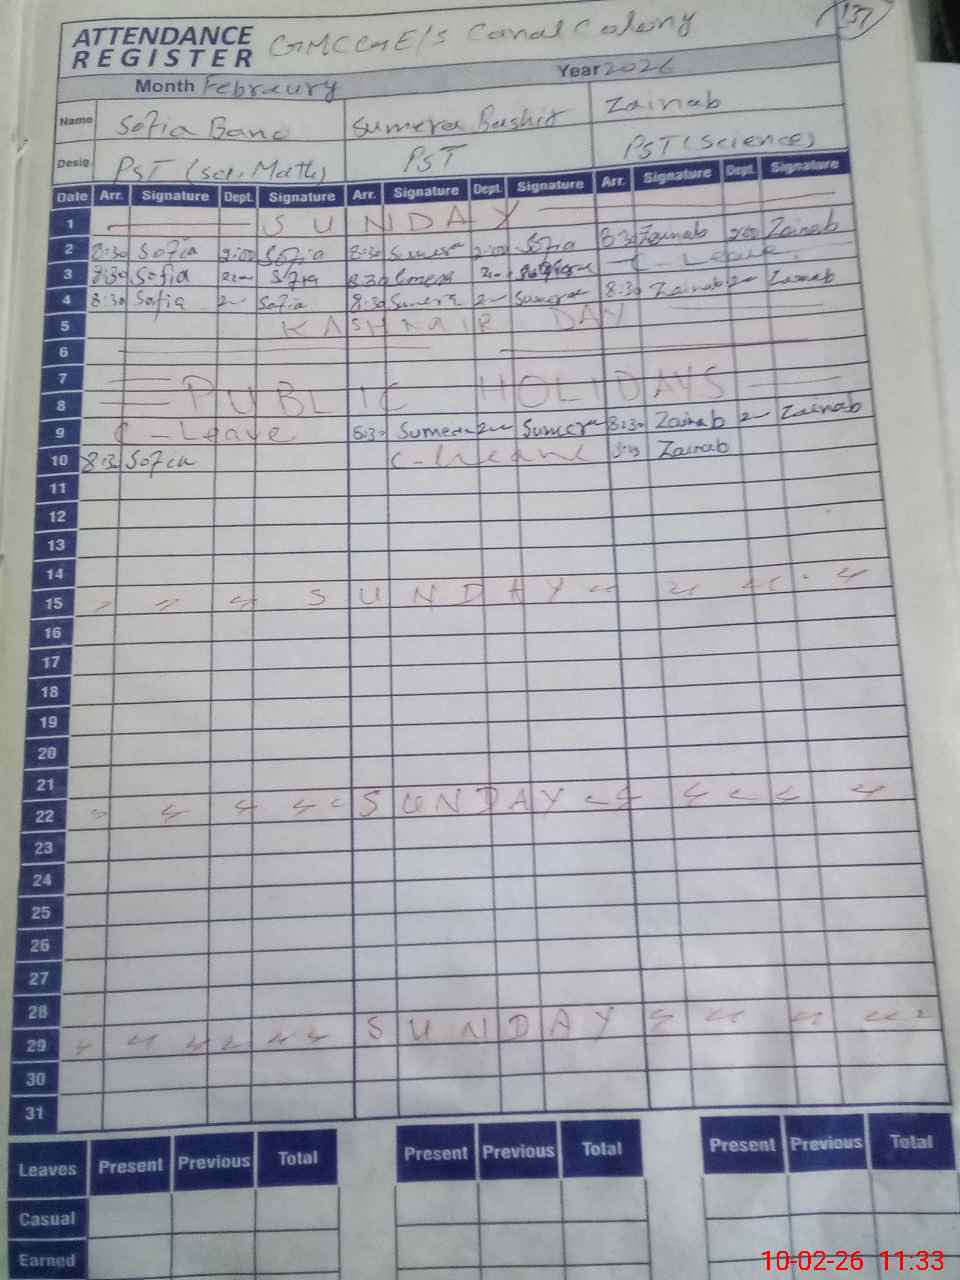 ATTENDANCE REGISTER GMCGGE/S Canal Colony 137
Month Febraury Year 2026
Name Sofia Bano Sumera Bashir Zainab
Desig. PST (sci, Math) PST PST (Science)
Date Arr. Signature Dept. Signature Arr. Signature Dept. Signature Arr. Signature Dept. Signature
1 SUNDAY
2 8:30 Sofia 2:00 Sofia 8:30 Sumera 2:00 Sofia 8:30 Zainab 2:00 Zainab
3 8:30 Sofia 2 Sofia 8:30 Sumera 2 C-Leave.
4 8:30 Sofia 2 Sofia 8:30 Sumera 2 Sumera 8:30 Zainab 2 Zainab
5 KASHMIR DAY
6
7 PUBLIC HOLIDAYS
8
9 C-Leave 8:30 Sumera 2 Sumera 8:30 Zainab 2 Zainab
10 8:30 Sofia C-Leave Zainab
11
12
13
14
15 SUNDAY
16
17
18
19
20
21
22 SUNDAY
23
24
25
26
27
28
29 SUNDAY
30
31
Leaves Present Previous Total Present Previous Total Present Previous Total
Casual
Earned
10-02-26 11:33